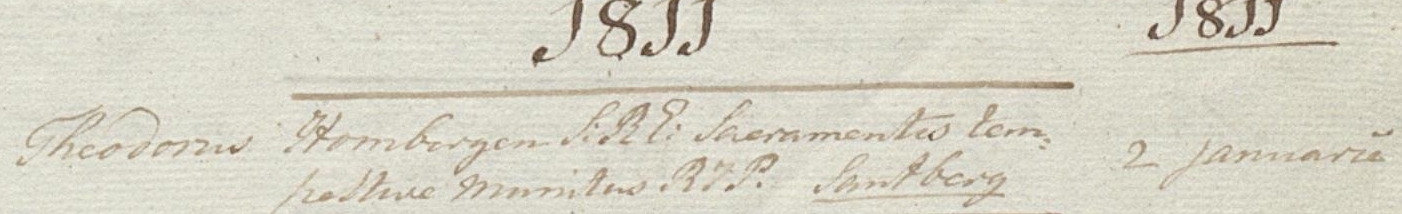 1811 1811
Theodorus Hombergen S: R E: Sacramentis tem=
pestive munitus R I P. Santberg 2 januarii